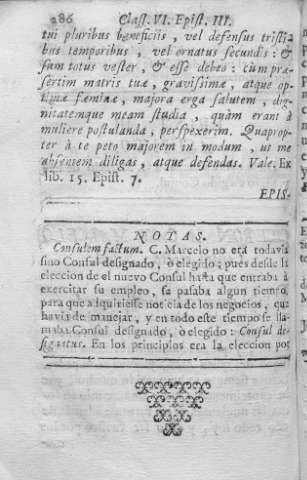 286 Class. VI. Epist. III.
tui pluribus beneficiis, vel defensus tristi-
bus temporibus, vel ornatus secundis: &
sum totus vester, & esse debeo: cùm præ-
sertim matris tuæ, gravissimæ, atque op-
timæ fœminæ, majora erga salutem, dig-
nitatemque meam studia, quàm erant à
muliere postulanda, perspexerim. Quaprop-
ter à te peto majorem in modum, ut me
absentem diligas, atque defendas. Vale. Ex
lib. 15. Epist. 7.
EPIS-
NOTAS.
Consulem factum. C. Marcelo no era todavia
sino Consul designado, ò elegido; pues desde la
eleccion de el nuevo Consul hasta que entraba à
exercitar su empleo, se pasaba algun tiempo,
para que adquiriesse noticia de los negocios, que
havia de manejar, y en todo este tiempo se lla-
maba Consul designado, ò elegido: Consul de-
signatus. En los principios era la eleccion por